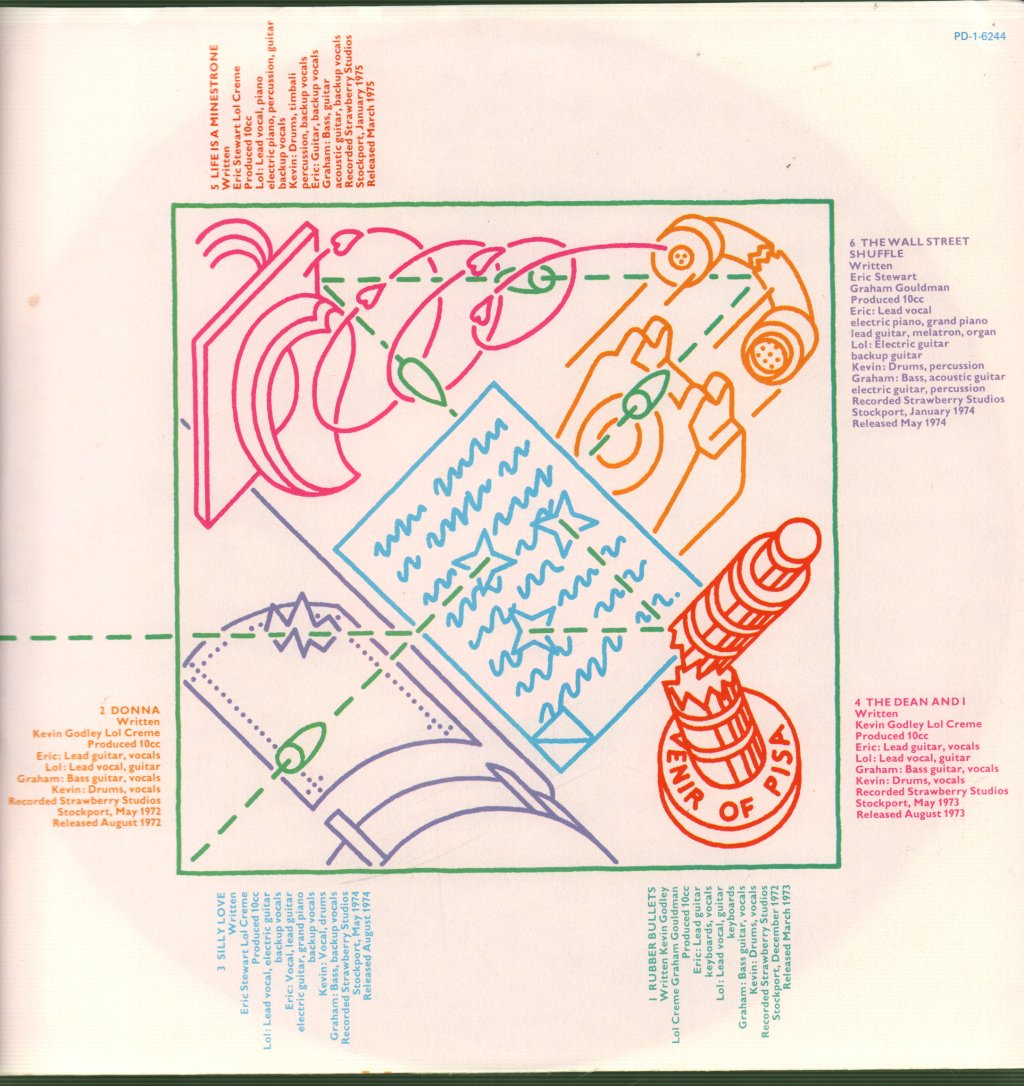 PD-1-6244
5 LIFE IS A MINESTRONE
Written
Eric Stewart Lol Creme
Produced 10cc
Lol: Lead vocal, piano
electric piano, percussion, guitar
backup vocals
Kevin: Drums, timbali
percussion, backup vocals
Eric: Guitar, backup vocals
Graham: Bass, guitar
acoustic guitar, backup vocals
Recorded Strawberry Studios
Stockport, January 1975
Released March 1975
6 THE WALL STREET
SHUFFLE
Written
Eric Stewart
Graham Gouldman
Produced 10cc
Eric: Lead vocal
electric piano, grand piano
lead guitar, melatron, organ
Lol: Electric guitar
backup guitar
Kevin: Drums, percussion
Graham: Bass, acoustic guitar
electric guitar, percussion
Recorded Strawberry Studios
Stockport, January 1974
Released May 1974
2 DONNA
Written
Kevin Godley Lol Creme
Produced 10cc
Eric: Lead guitar, vocals
Lol: Lead vocal, guitar
Graham: Bass guitar, vocals
Kevin: Drums, vocals
Recorded Strawberry Studios
Stockport, May 1972
Released August 1972
VENIR OF PISA
4 THE DEAN AND I
Written
Kevin Godley Lol Creme
Produced 10cc
Eric: Lead guitar, vocals
Lol: Lead vocal, guitar
Graham: Bass guitar, vocals
Kevin: Drums, vocals
Recorded Strawberry Studios
Stockport, May 1973
Released August 1973
3 SILLY LOVE
Written
Eric Stewart Lol Creme
Produced 10cc
Lol: Lead vocal, electric guitar
backup vocals
Eric: Vocal, lead guitar
electric guitar, grand piano
backup vocals
Kevin: Vocal, drums
Graham: Bass, backup vocals
Recorded Strawberry Studios
Stockport, May 1974
Released August 1974
1 RUBBER BULLETS
Written Kevin Godley
Lol Creme Graham Gouldman
Produced 10cc
Eric: Lead guitar
keyboards, vocals
Lol: Lead vocal, guitar
keyboards
Graham: Bass guitar, vocals
Kevin: Drums, vocals
Recorded Strawberry Studios
Stockport, December 1972
Released March 1973